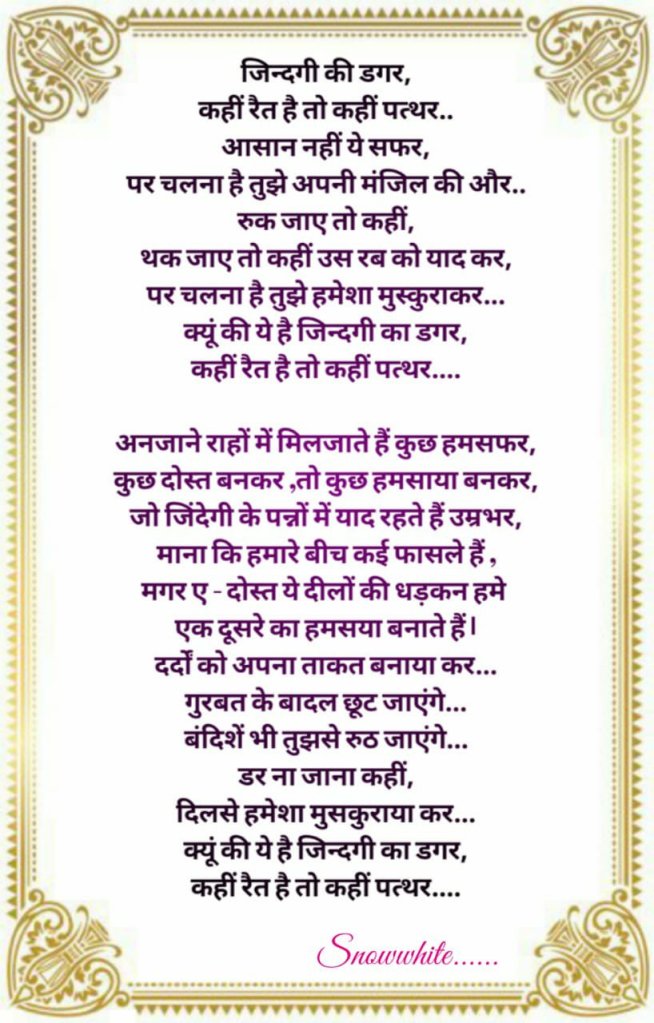 जिन्दगी की डगर,
कहीं रैत है तो कहीं पत्थर..
आसान नहीं ये सफर,
पर चलना है तुझे अपनी मंजिल की और..
रुक जाए तो कहीं,
थक जाए तो कहीं उस रब को याद कर,
पर चलना है तुझे हमेशा मुस्कुराकर...
क्यूं की ये है जिन्दगी का डगर,
कहीं रैत है तो कहीं पत्थर....

अनजाने राहों में मिलजाते हैं कुछ हमसफर,
कुछ दोस्त बनकर ,तो कुछ हमसाया बनकर,
जो जिंदेगी के पन्नों में याद रहते हैं उम्रभर,
माना कि हमारे बीच कई फासले हैं ,
मगर ए - दोस्त ये दीलों की धड़कन हमे
एक दूसरे का हमसया बनाते हैं।
दर्दों को अपना ताकत बनाया कर...
गुरबत के बादल छूट जाएंगे...
बंदिशें भी तुझसे रुठ जाएंगे...
डर ना जाना कहीं,
दिलसे हमेशा मुसकुराया कर...
क्यूं की ये है जिन्दगी का डगर,
कहीं रैत है तो कहीं पत्थर....

Snowwhite......